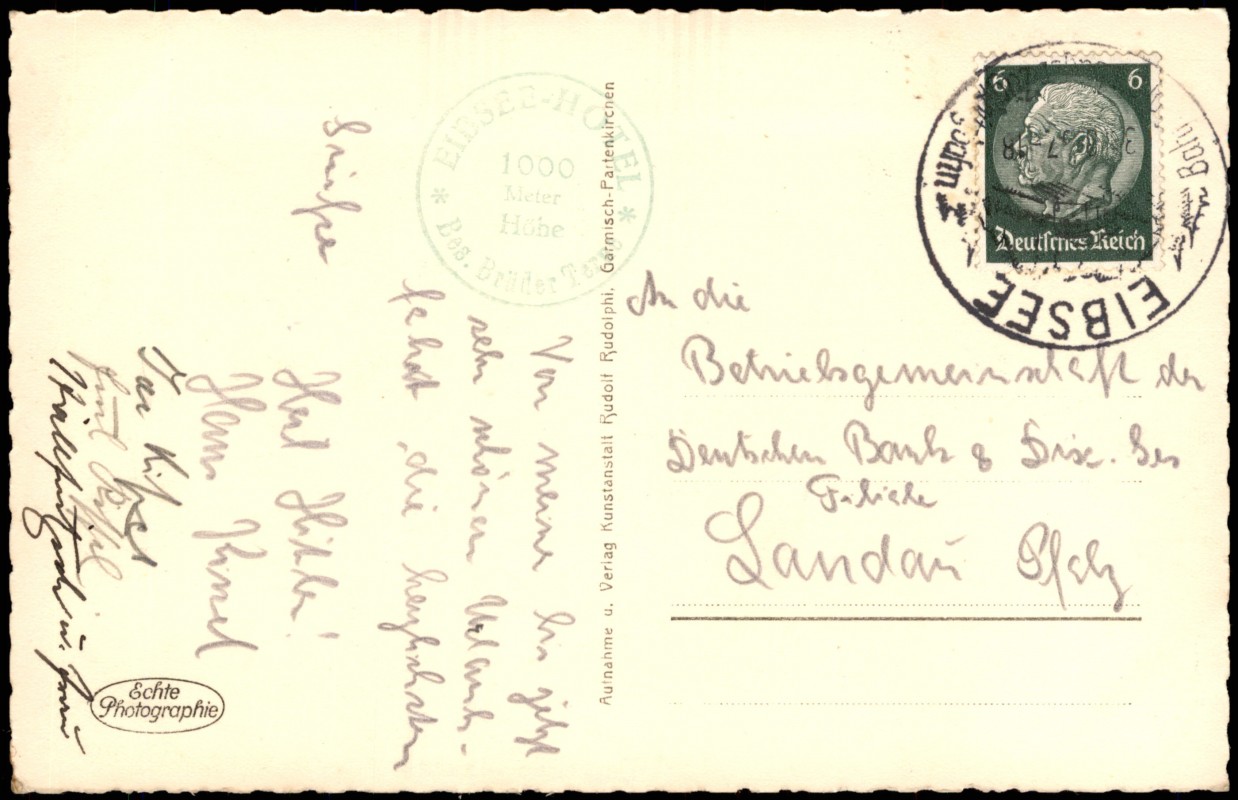 EIBSEE-HOTEL
1000
Meter
Höhe
* Bes. Brüder Terne *
Von meine bis jetzt
sehr schönen Urlaub-
fahrt die herzlichsten
Grüße
Heil Hitler!
Hans
u. Frau
Echte
Photographie
Aufnahme u. Verlag Kunstanstalt Rudolf Rudolphi, Garmisch-Partenkirchen
6 6
Deutsches Reich
EIBSEE
Bahn
An die
Betriebsgemeinschaft der
Deutschen Bank & Disc. Ges
Filiale
Landau Pfalz